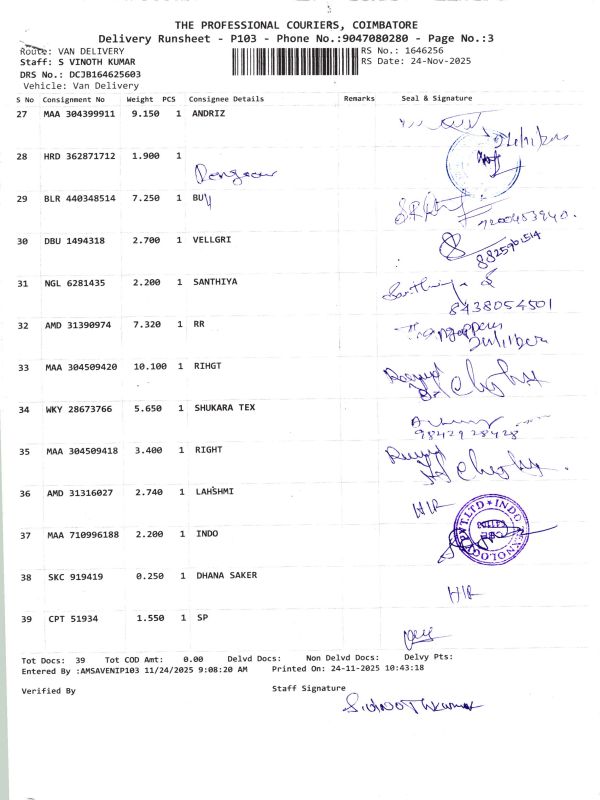 THE PROFESSIONAL COURIERS, COIMBATORE
Delivery Runsheet - P103 - Phone No.:9047080280 - Page No.:3
Route: VAN DELIVERY
RS No.: 1646256
Staff: S VINOTH KUMAR
RS Date: 24-Nov-2025
DRS No.: DCJB164625603
Vehicle: Van Delivery
S No Consignment No Weight PCS Consignee Details Remarks Seal & Signature
27 MAA 304399911 9.150 1 ANDRIZ
28 HRD 362871712 1.900 1
29 BLR 440348514 7.250 1 BU
7200453940.
30 DBU 1494318 2.700 1 VELLGRI
8825901514
31 NGL 6281435 2.200 1 SANTHIYA
Santhiya S
8438054501
32 AMD 31390974 7.320 1 RR
33 MAA 304509420 10.100 1 RIHGT
34 WKY 28673766 5.650 1 SHUKARA TEX
9842928428
35 MAA 304509418 3.400 1 RIGHT
36 AMD 31316027 2.740 1 LAHSHMI
37 MAA 710996188 2.200 1 INDO
38 SKC 919419 0.250 1 DHANA SAKER
39 CPT 51934 1.550 1 SP
Tot Docs: 39 Tot COD Amt: 0.00 Delvd Docs: Non Delvd Docs: Delvy Pts:
Entered By :AMSAVENIP103 11/24/2025 9:08:20 AM Printed On: 24-11-2025 10:43:18
Verified By
Staff Signature